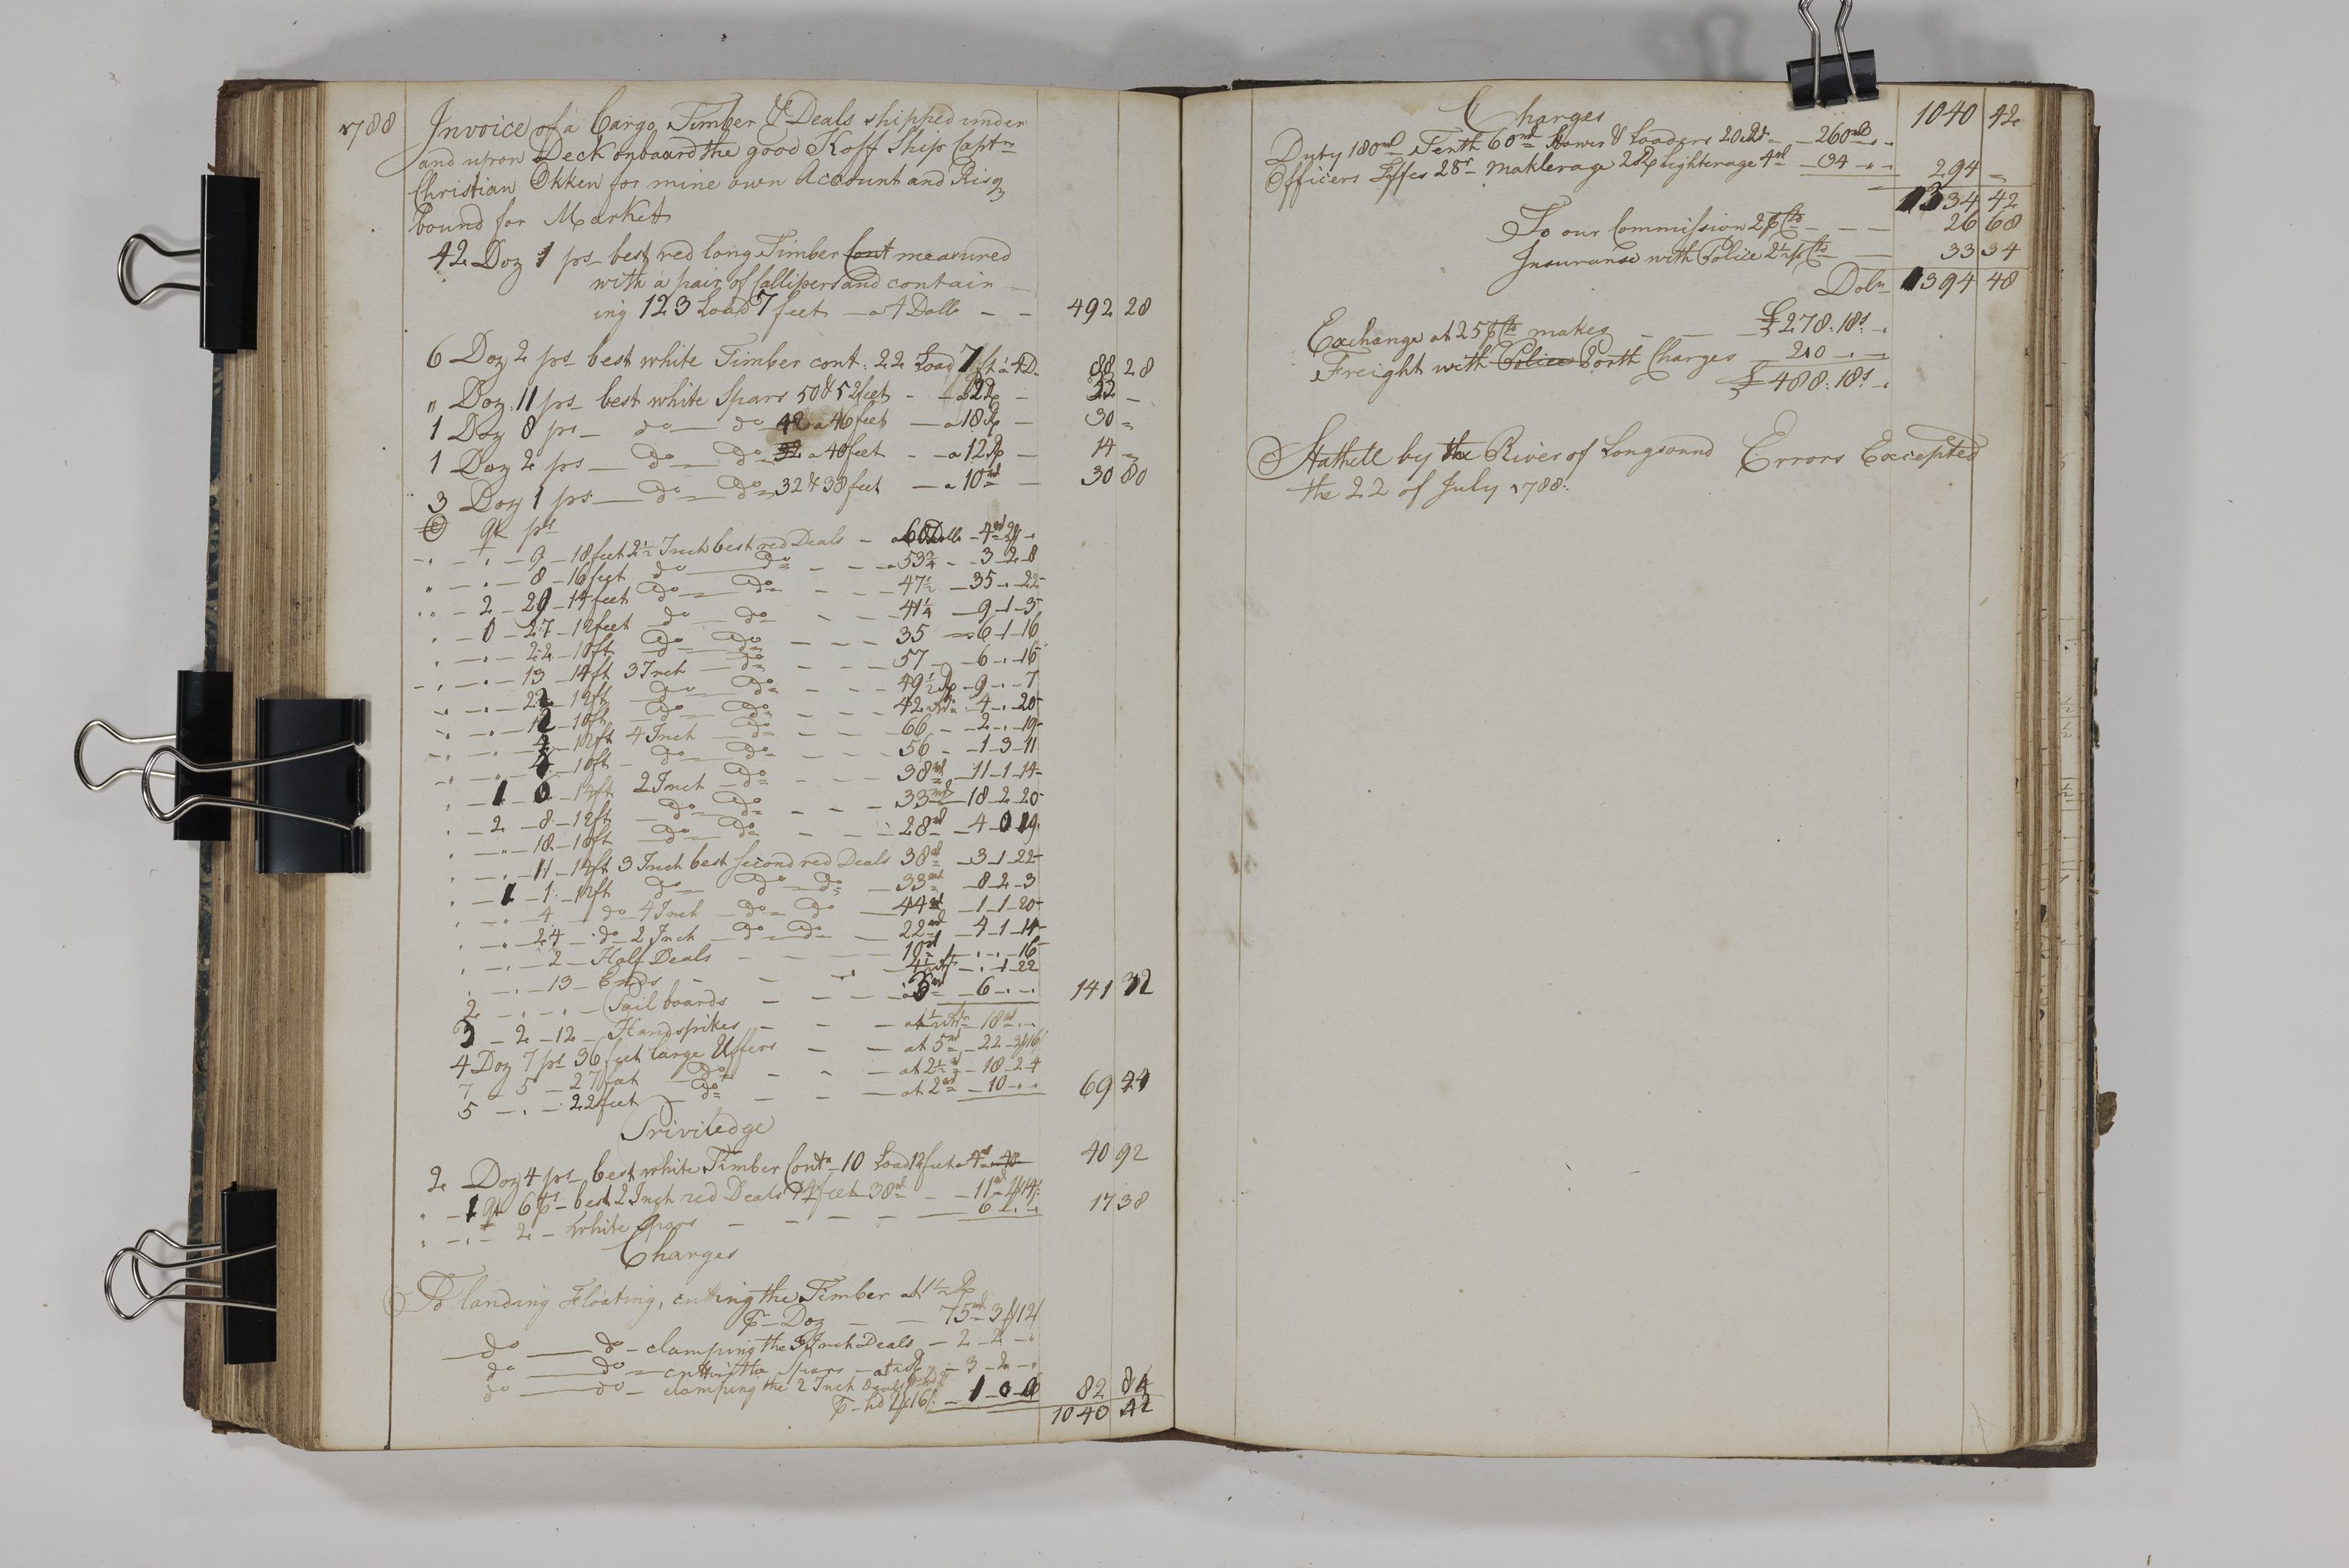 1788
Invoice of a Cargo Timber & Deals shipped under
and upon Deck onboard the good Koff Ship Captn
Christian Okken for mine own Account and Risq
bound for Markett
42 Doz 1 ps best red long Timber cont measured
with a pair of Callipers and contain
ing 123 Load 7 feet — a 4 Doll - - 492 28
6 Doz 2 ps best white Timber cont: 22 Load 7 ft a 4 D. 88 28
" Doz 11 ps best white Spars 50 & 52 feet - - 22 -
1 Doz 8 ps — do — do — a 46 feet — a 18 - 30 "
1 Doz 2 ps — do — do a 40 feet - - a 12 - 14 "
3 Doz 1 ps — do — do 32 & 38 feet — a 10 rd - 30 80
qr ps
" - " - 9 - 18 feet 2½ Inch best red Deals - a 60 Doll - 4
" - " - 8 - 16 feet do — do - - - a 53¾ - - 3 - 2 - 8
" - 2 - 20 - 14 feet do — do - - - 47½ - 35 - " - 22
" - 0 - 27 - 12 feet do — do - - - 41¼ - 9 - 1 - 5
" - " - 22 - 10 ft do — do - - - 35 - 6 - 1 - 16
" - " - 13 - 14 ft 3 Inch — do - - - 57 - 6 - " - 16
" - " - 22 - 12 ft do — do - - - 49½ - 9 - " - 7
" - " - 12 - 10 ft do — do - - - 42 - 4 - " - 20
" - " - 12 ft 4 Inch — do - - - 66 - 2 - " - 19
" - " - 10 ft - do — do - - - 56 - 1 - 3 - 11
" - 1 - 6 - 14 ft 2 Inch do - - - 38 rd - 11 - 1 - 14
" - 2 - 8 - 12 ft do — do - - - 33 rd - 18 - 2 - 20
" - " - 18 - 10 ft do — do - - - 28 rd - 4 - 0 19
" - " - 11 - 14 ft 3 Inch best second red Deals 38 rd - 3 - 1 - 22
" - 1 - 1 - 12 ft do — do — do - 33 rd - 8 - 2 - 3
" - " - 4 - do - 4 Inch - do — do - 44 rd - 1 - 1 - 20
" - " - 24 - do - 2 Inch - do — do - 22 rd - 4 - 1 - 14
" - " - 2 - Half Deals - - - - 10 rd - " - " - 16
" - " - 13 - Ends - - - 4½ - " - 1 - 22
2 - " - " - Tail boards - - - - - 6 - " - " 141 32
3 - 2 - 12 - Handspikes - - - at ½ - 18 rd - "
4 Doz 7 ps 36 feet large Uffers - - at 5 rd - 22 - 3/16
7 - 5 - 27 feet - do - - - at 2½ rd - 18 - 2 - 4
5 - " - 22 feet - do - - - at 2 rd - 10 - " - " 69 44
Priviledge
2 Doz 4 ps best white Timber Contn 10 Load 12 feet a 4 rd 40 92
" - 1 qr 6 ps best 2 Inch red Deals 14 feet 38 rd - - 11
" - " - 2 - white Spars - - - - - 6 - " - " 17 38
Charges
To landing Floating, cutting the Timber at 1½
pr Doz - - 75 rd 3/12
do — do - clamping the 3 Inch Deals - 2 - 2 - "
do — do - cutting the Spars - - 3 - 2 - "
do — do - clamping the 2 Inch Deals
- 1 - 0 - 0 82 84
1040 42
Charges 1040 42
Duty 180 rd Tenth 60 rd Stower & Loaders 20 rd - 260 rd - "
Officers Fyffes 28 r Maklerage 2 Lighterage 4 rd - 34 - " - " 294 "
1334 42
To our Commission 2 p Cto - - - 26 68
Insuranse with Police 2½ p Cto - 33 34
Dolrs 1394 48
Exchange at 25 p Cto makes - - £ 278. 18s -.
Freight with Police Porth Charges - 210 - . -
£ 488. 18s -.
Stathell by the River of Longsound Errors Excepted
the 22 of July 1788: